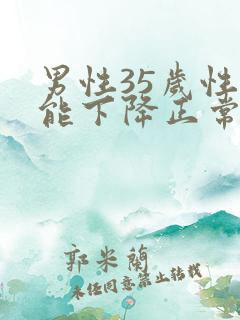 男性35歲性
能下降正常
郭米蘭
未经同意禁止转载